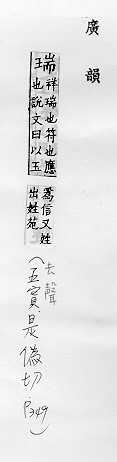 廣韻
瑞
祥瑞也符也應
也說文曰以玉
爲信又姓
出姓苑
(去聲
五寘是偽切 P349)